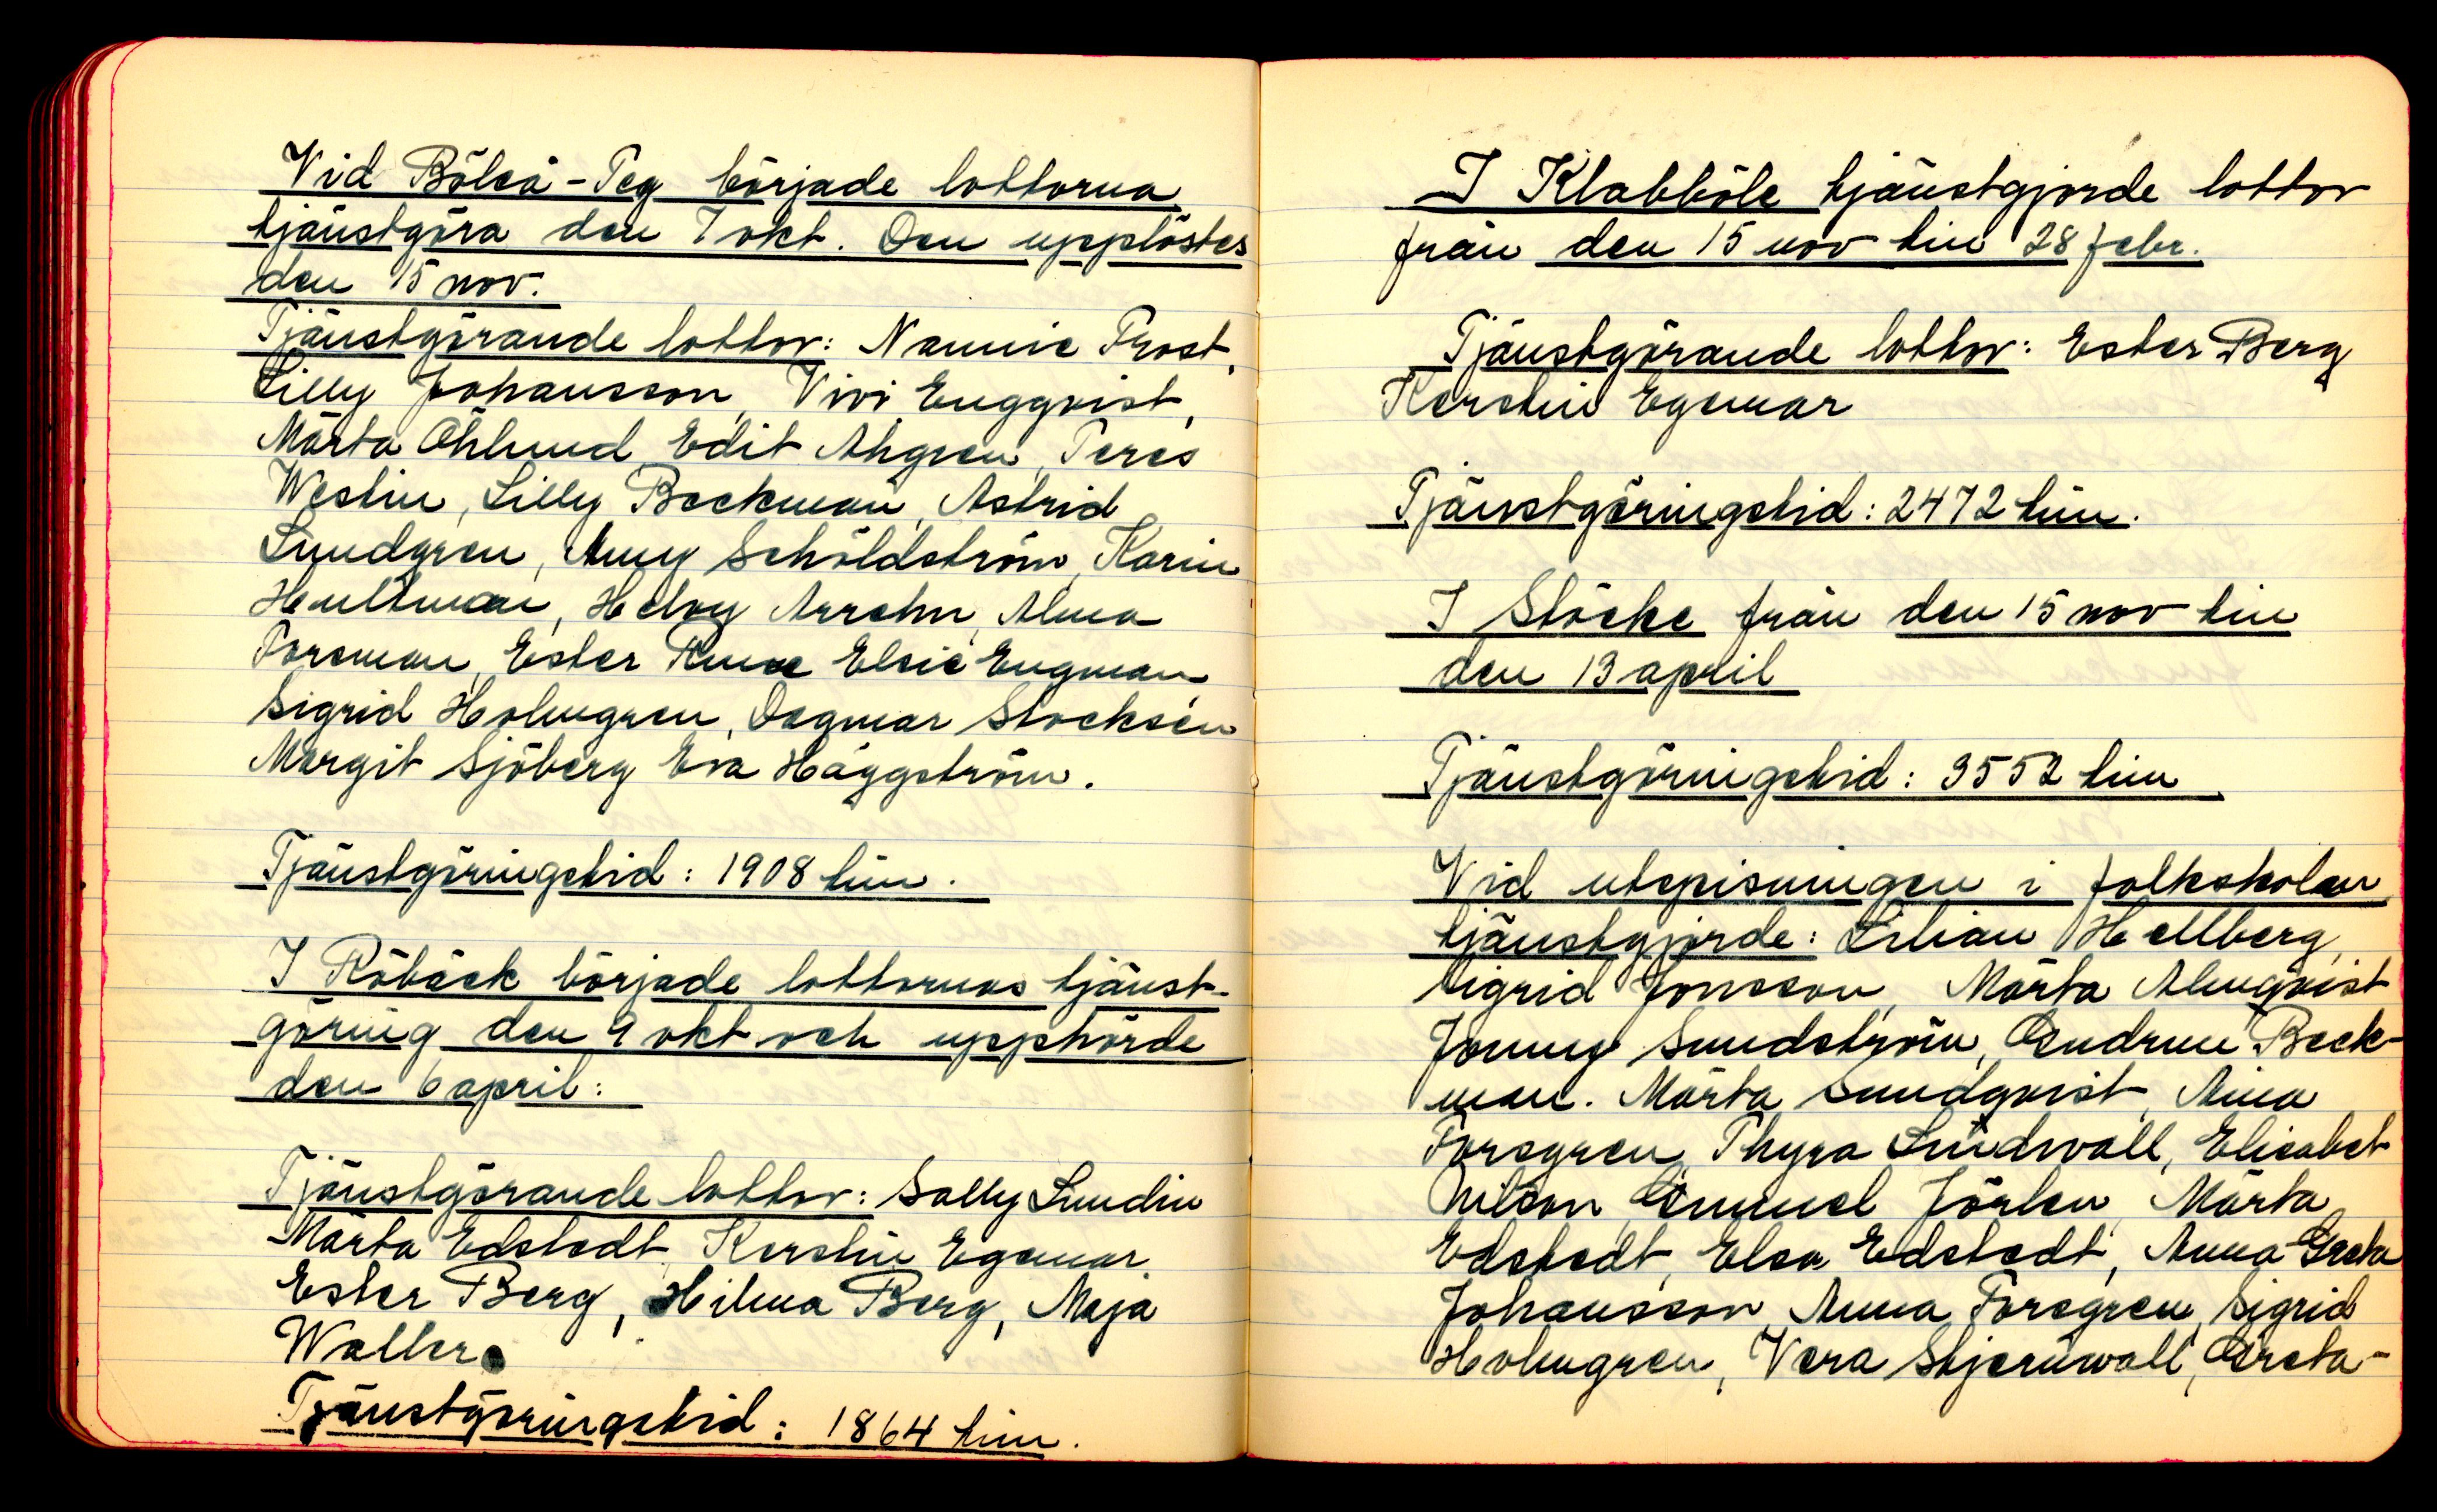 Vid Böleå-Teg började lottorna
tjänstgöra den 7 okt. Den upplöstes
den 15 nov.
Tjänstgörande lottor: Nannie Frost,
Lilly Johansson, Vivi Engqvist,
Märta Öhlund Edit Ahgren, Teres
Westin, Lilly Beckman, Astrid
Lundgren, Anny Schöldström, Karin
Hultman, Helvy Arrehn, Alma
Forsman, Ester Elsie Engman,
Sigrid Holmgren, Dagmar Stocksén
Margit Sjöberg Eva Häggström.
Tjänstgöringstid: 1908 tim.
I Röbäck började lottornas tjänst-
göring den 9 okt och upphörde
den 6 april:
Tjänstgörande lottor: Sally Lundin
Märta Edstedt, Kerstin Egemar,
Ester Berg, Hilma Berg, Maja
Waller.
Tjänstgöringstid: 1864 tim.
I Klabböle tjänstgjorde lottor
från den 15 nov till 28 febr.
Tjänstgörande lottor: Ester Berg
Kerstin Egemar
Tjänstgöringstid: 2472 tim.
I Stöcke från den 15 nov till
den 13 april
Tjänstgöringstid: 3552 tim
Vid utspisningen i folkskolan
tjänstgjorde: Lilian Hellberg,
Sigrid Jonsson, Märta Almqvist
Jonny Sundström, Gudrun Beck-
man. Märta Sundqvist, Aina
Forsgren, Thyra Lindwall, Elisabet
Nilson, Gunnel Jörlen, Märta
Edstedt, Elsa Edstedt, Anna Greta
Johansson, Anna Forsgren, Sigrid
Holmgren, Vera Stjernwall, Greta-